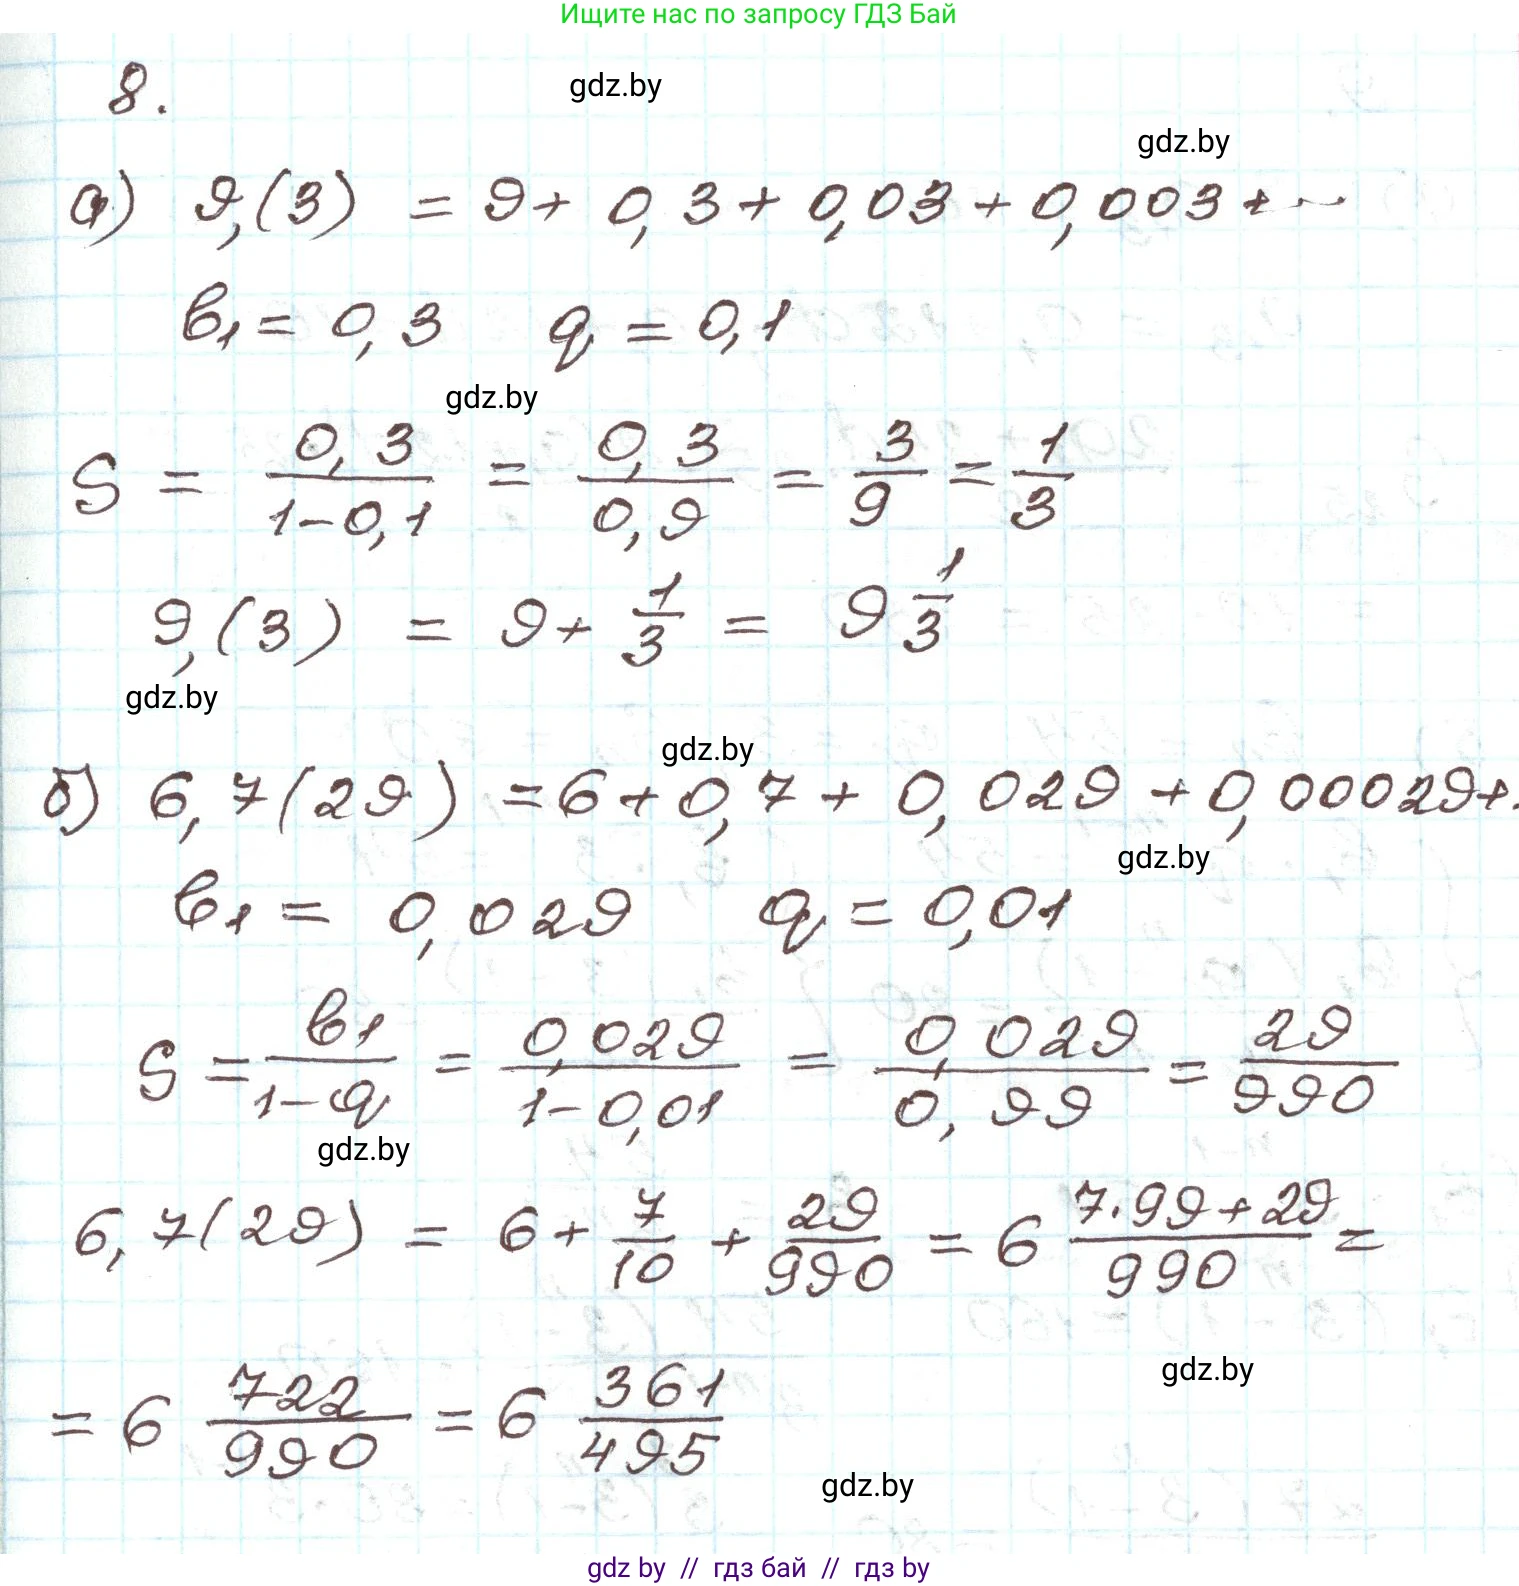 Ищите нас по запросу ГДЗ Бай
8.
gdz.by
gdz.by
а) 9,(3) = 9 + 0,3 + 0,03 + 0,003 + ...
b₁ = 0,3 q = 0,1
gdz.by
S = 0,3/(1-0,1) = 0,3/0,9 = 3/9 = 1/3
9,(3) = 9 + 1/3 = 9 1/3
gdz.by
gdz.by
б) 6,7(29) = 6 + 0,7 + 0,029 + 0,00029 + .
gdz.by
b₁ = 0,029 q = 0,01
S = b₁/(1-q) = 0,029/(1-0,01) = 0,029/0,99 = 29/990
gdz.by
6,7(29) = 6 + 7/10 + 29/990 = 6 (7·99+29)/990 =
= 6 722/990 = 6 361/495
gdz.by
gdz.by
gdz by // гдз бай // гдз by